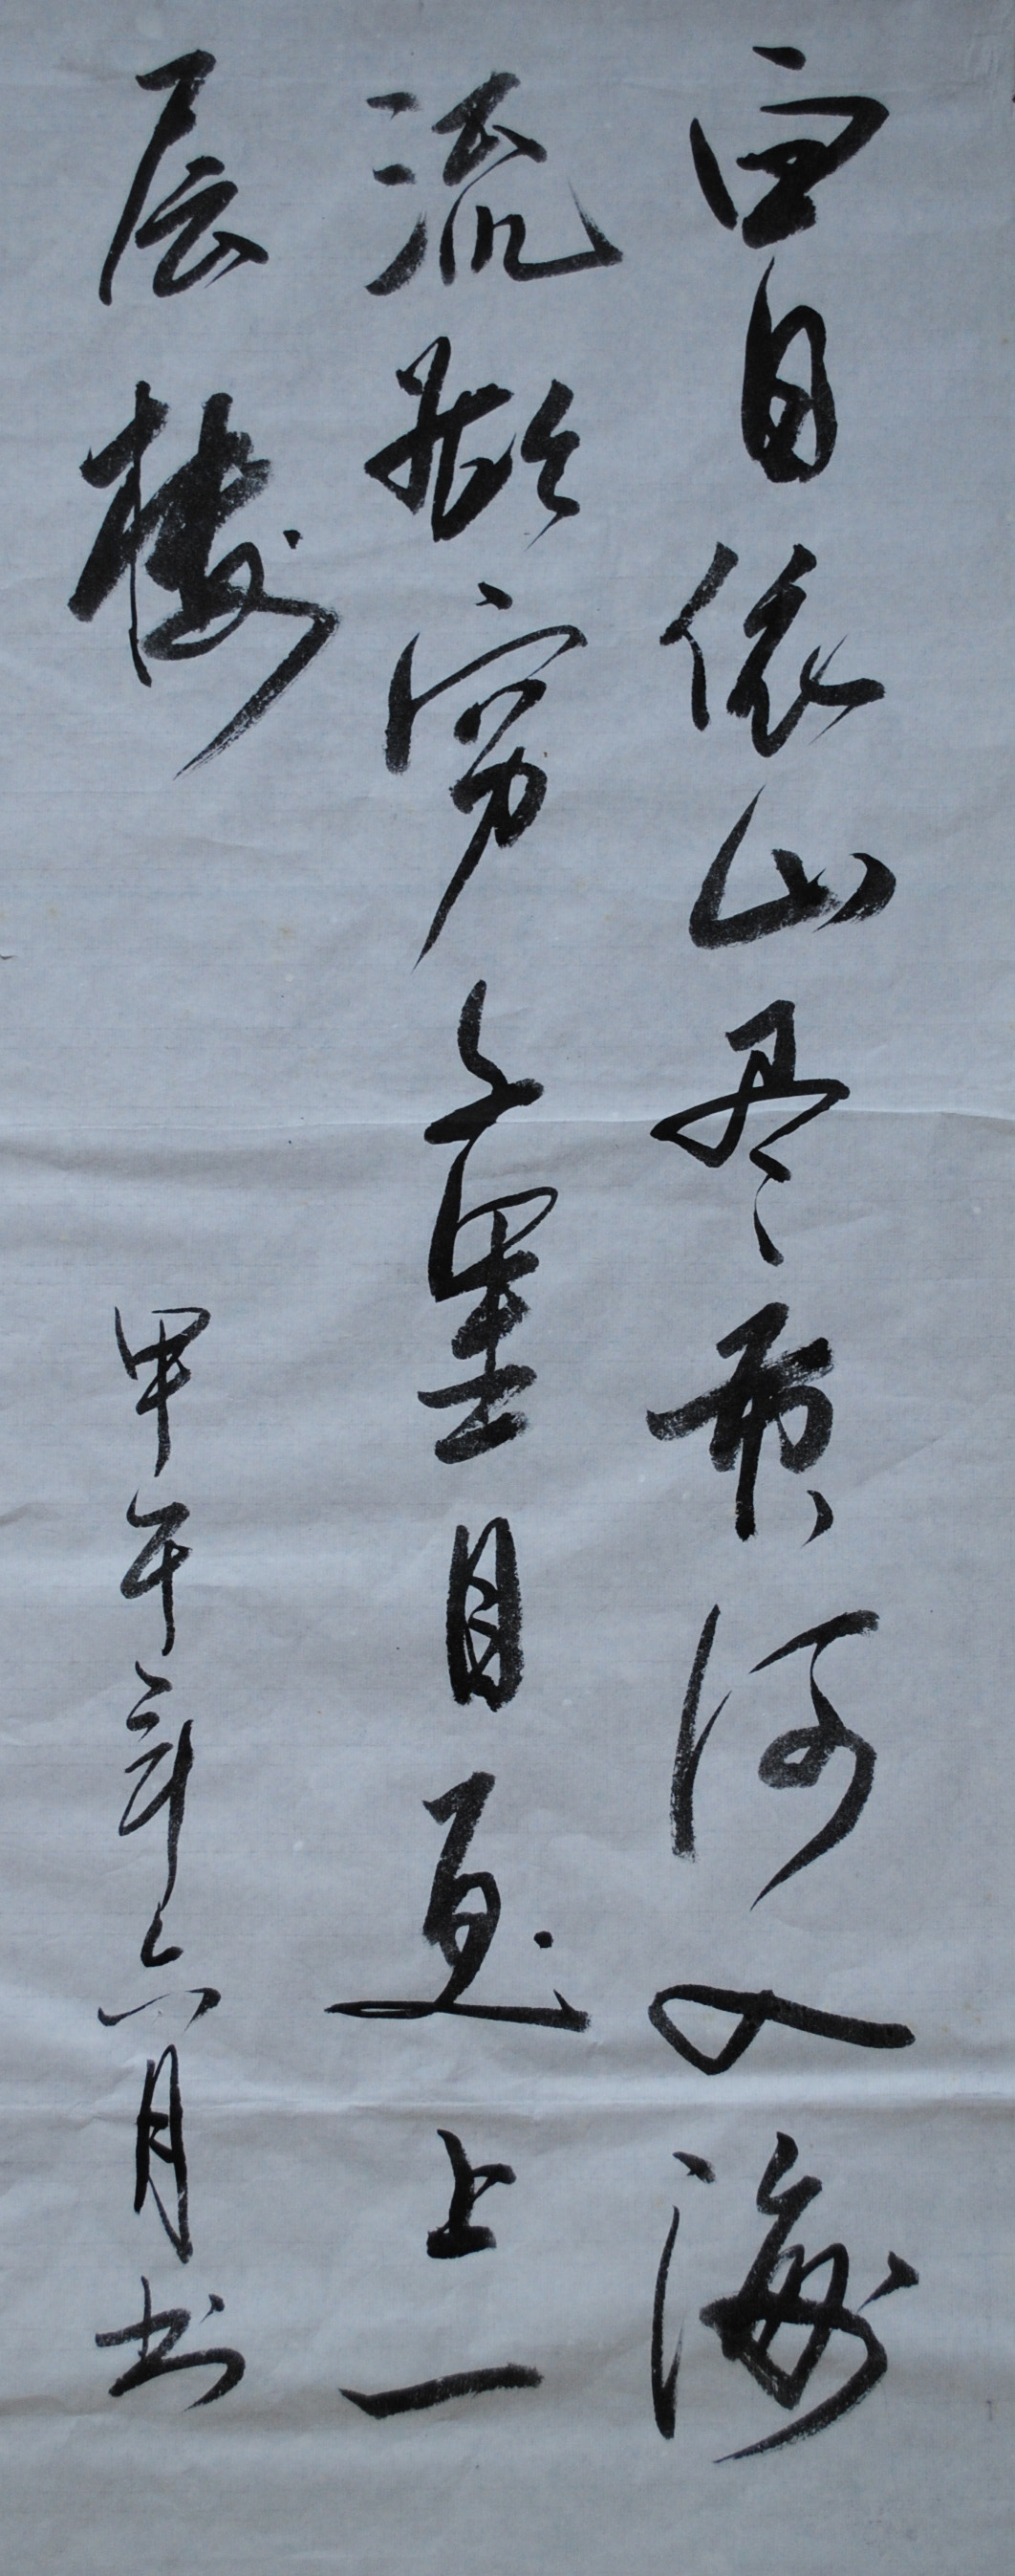 白日依山尽黄河入海
流欲穷千里目更上一
层楼
甲午年六月书